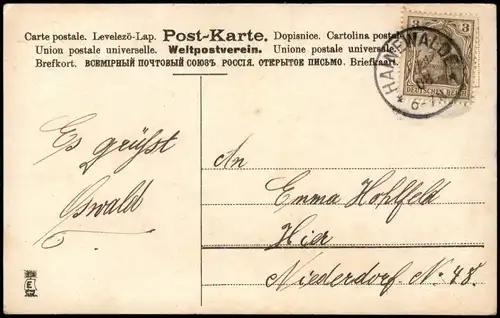 Carte postale. Levelező-Lap. Post-Karte. Dopisnice. Cartolina postale
Union postale universelle. Weltpostverein. Unione postale universale.
Brefkort. ВСЕМІРНЫЙ ПОЧТОВЫЙ СОЮЗЪ РОССІЯ. ОТКРЫТОЕ ПИСЬМО. Briefkaart.
3 3
DEUTSCHES REICH
HAINEWALDE
Es grüßt
Oswald
An
Emma Hohlfeld
Hier
Niederdorf. No. 48.